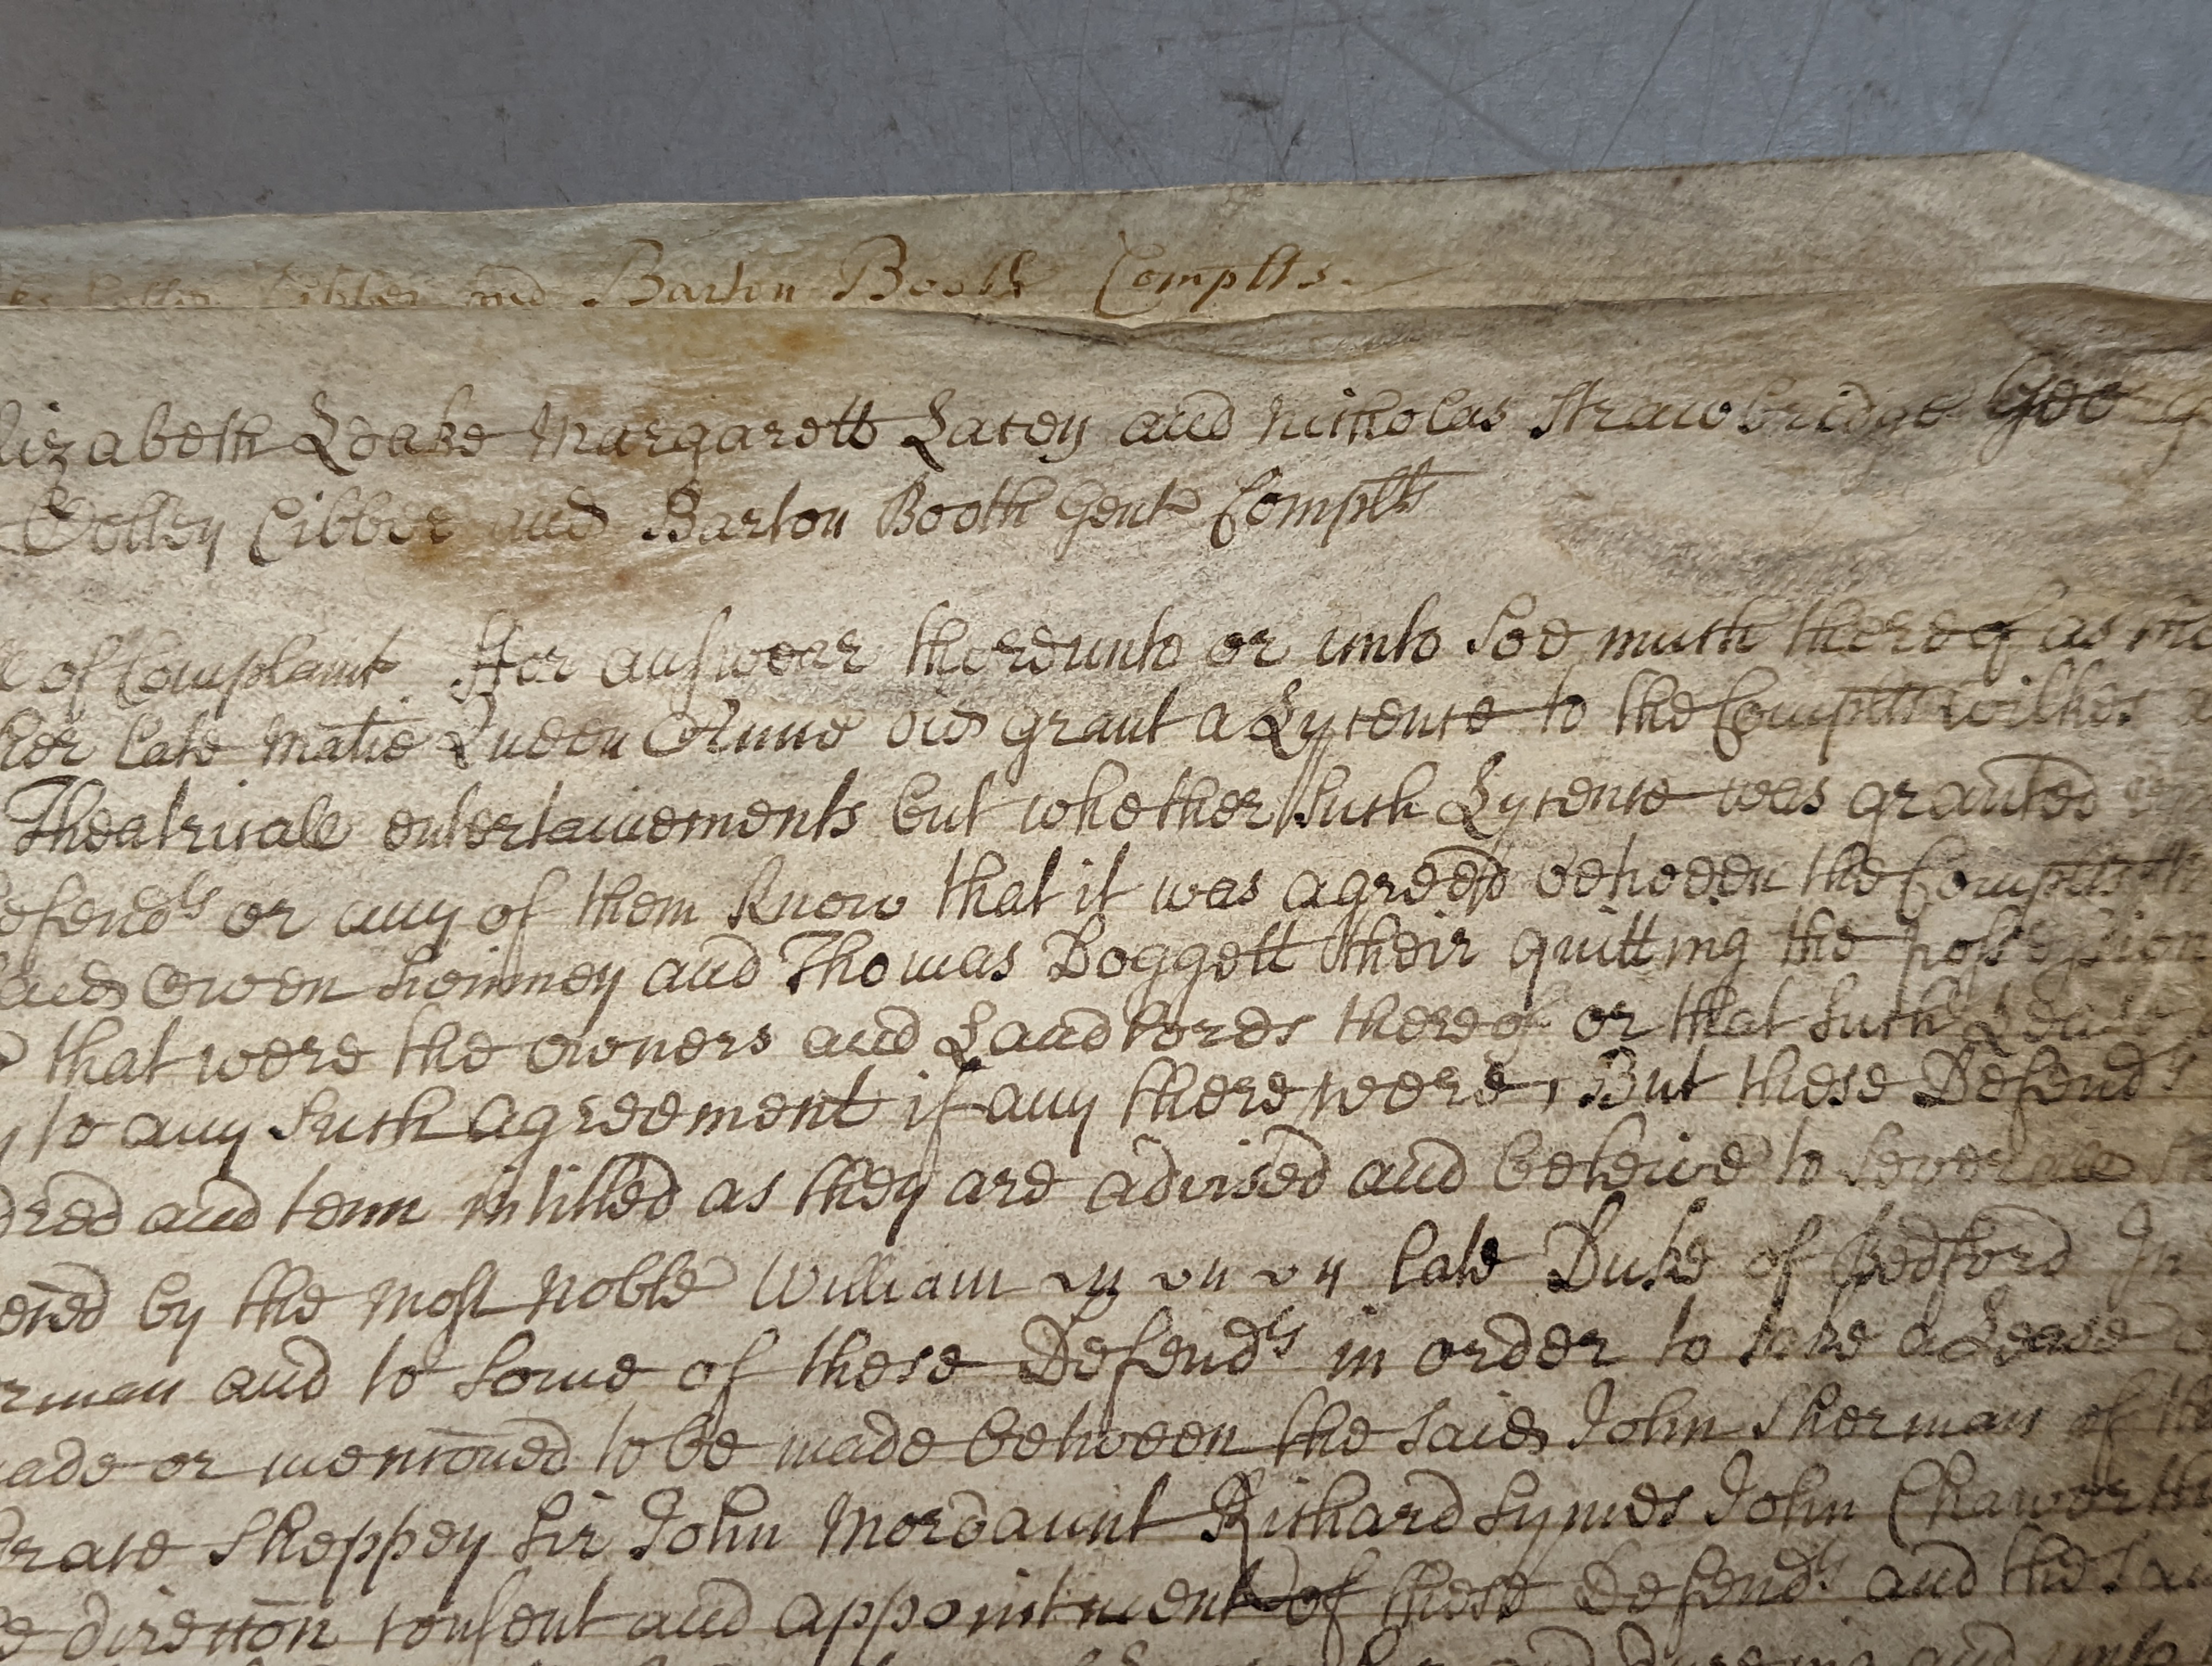 Colley Cibber and Barton Booth Complts.
lizabeth Leake Margarett Lacey and Nicholas Strawbridge
Colley Cibber and Barton Booth Gent Complts
of Complaint For answear thereunto or unto soe much thereof as
her late Matie Queen Anne did grant a Lycence to the Complts Wilkes
Theatricale entertainements but whether such Lycence was granted
efendts or any of them know that it was agreed betweene the Complts
and Owen Swinney and Thomas Doggett their quitting the possession
that were the owners and Landlords thereof or that such Lease
to any such agreement if any there were, But these Defendts
dred and tenn intitled as they are advised and beleive to severall
ered by the most noble William late Duke of Bedford In
rman and to some of these Defendts in order to take a Lease
ade or mencōned to be made between the said John Sherman of the
Grace Sheppey Sir John Mordaunt Richard Symes John Chaworth
direccōn consent and appointment of these Defendts and the sa